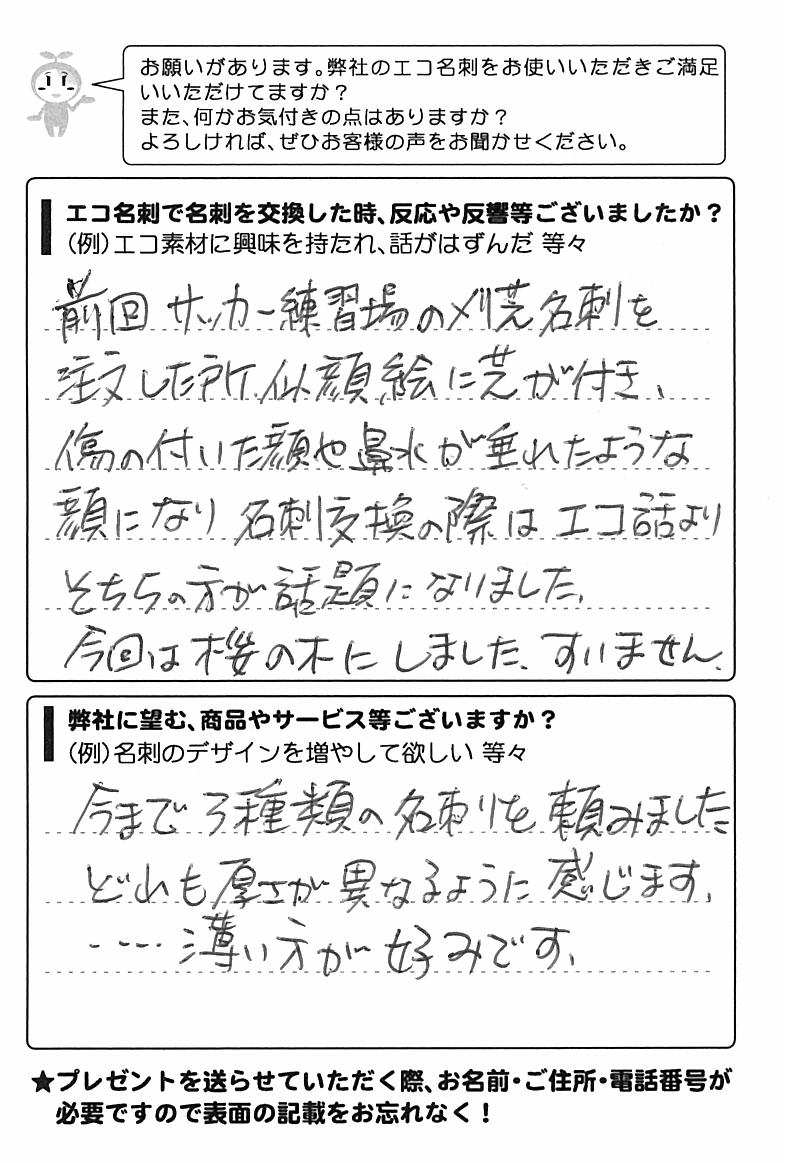 お願いがあります。弊社のエコ名刺をお使いいただきご満足
いいただけてますか？
また、何かお気付きの点はありますか？
よろしければ、ぜひお客様の声をお聞かせください。
エコ名刺で名刺を交換した時、反応や反響等ございましたか？
（例）エコ素材に興味を持たれ、話がはずんだ 等々
前回 サッカー練習場の刈芝名刺を
注文した所、似顔絵に芝が付き、
傷の付いた顔や鼻水が垂れたような
顔になり 名刺交換の際は エコ話より
そちらの方が話題になりました。
今回は桜の木にしました。すいません。
弊社に望む、商品やサービス等ございますか？
（例）名刺のデザインを増やして欲しい 等々
今まで 3種類の名刺を頼みました
どれも厚さが異なるように感じます。
‥‥薄い方が好みです。
★プレゼントを送らせていただく際、お名前・ご住所・電話番号が
必要ですので表面の記載をお忘れなく！